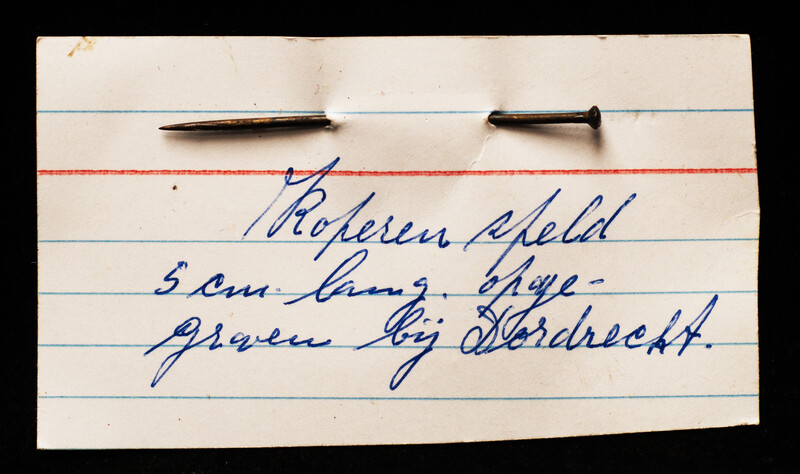 Koperen speld
5 cm. lang. opge-
graven bij Dordrecht.